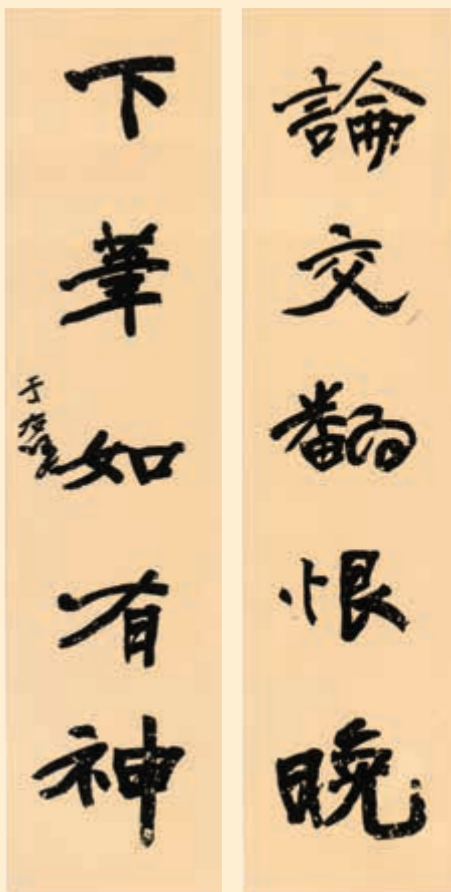 論交翻恨晚
下筆如有神
于右任